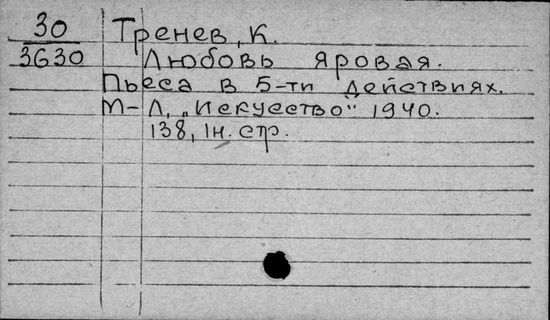 30 Тренев, К.
3630 Любовь яровая.
Пьеса в 5-ти действиях.
М-Л, „Искусство" 1940.
138, 1н. стр.